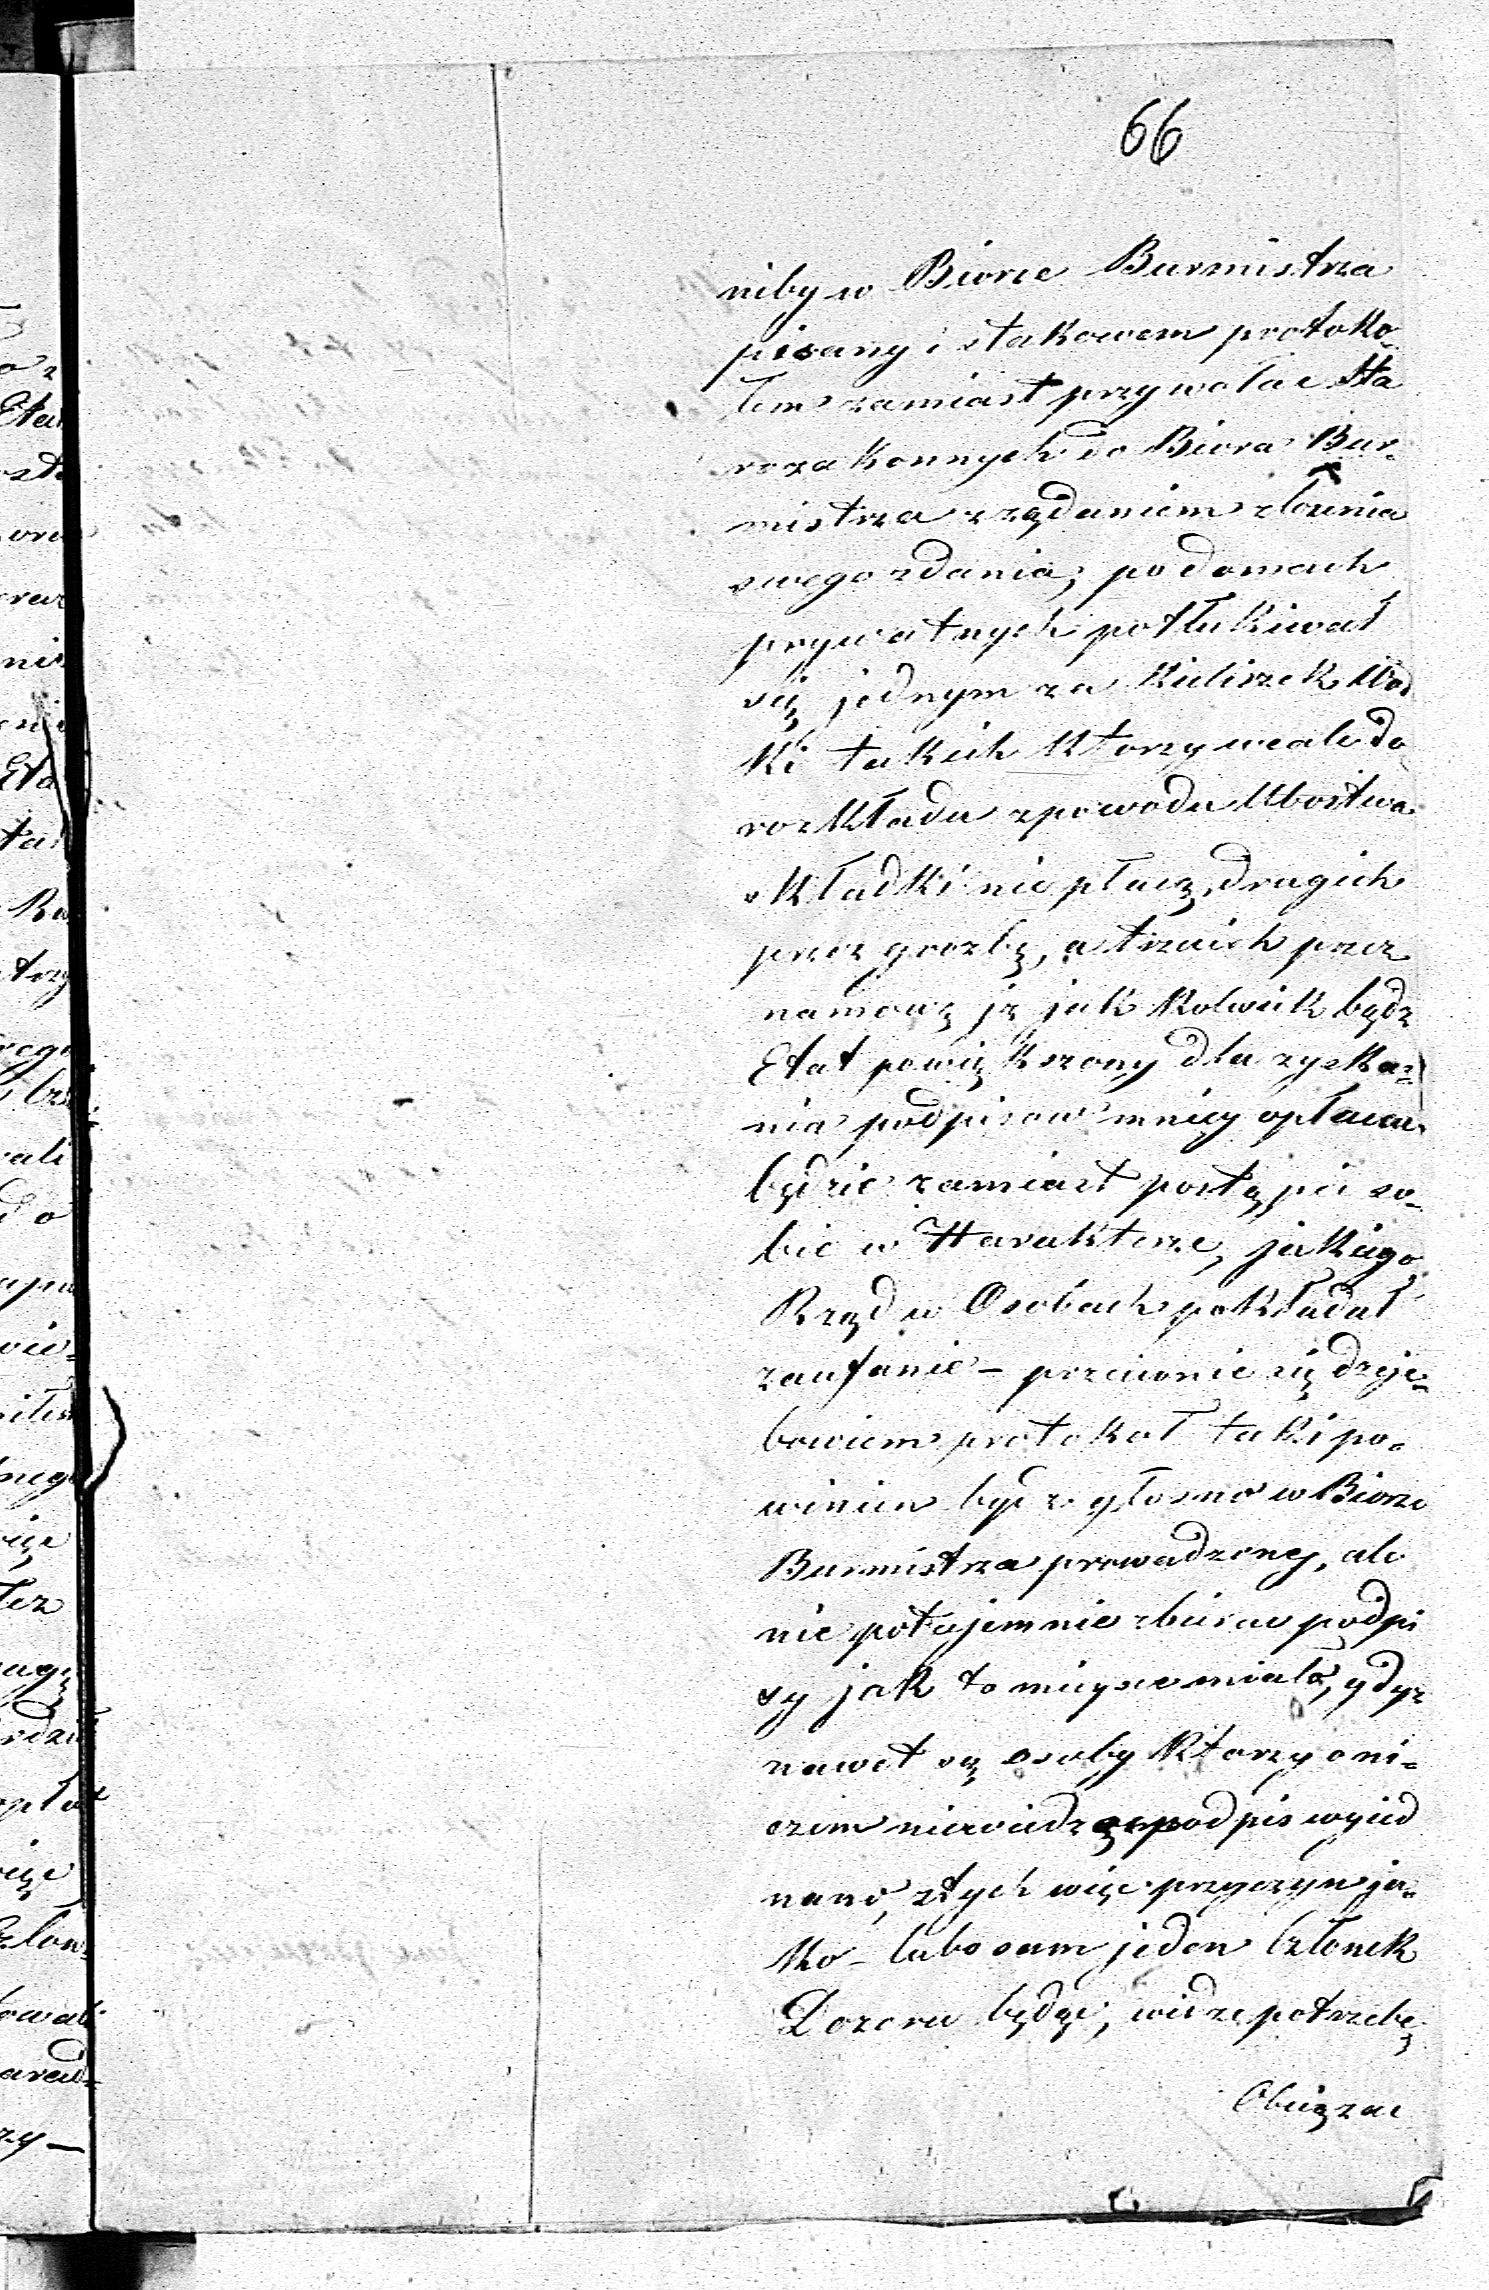 66
niby w Biorze Burmistrza
pisany i stakowem protoko-
łem zamiast przywołać Sta
rozakonnych do Biora Bur-
mistrza z rządaniem złożenia
swego zdania, po domach
prywatnych potłukiwał
się jednym za Kieliszek Wod
ki takich którzy wcale do
rozkładu z powodu Ubostwa
składki nie płacą, drugich
przez grozbę, a trzecich przez
namowę iż jak kolwiek będz
Etat powiększony dla zyska-
nia podpisow mniey opłacac
będzie zamiast postąpić so-
bie w Harakterze, jakiego
Rząd w Osobach pokładał
zaufanie – przeciwnie się dzeje-
bowiem protokoł taki po-
winien być zgłosno w Biorze
Burmistrza prowadzony, ale
nie potajemnie zbierac podpi
sy jak to mieysce miało, gdyz
nawet są osoby którzy o ni-
czem niewiedzą a podpis wyied
nano, z tych więc przyczyn ja-
ko – lubo sam jeden Członek
Dozoru będąc, widze potrzebę
Obwiązac
o z
Eta
nie
Eta
ta
Ra
trzy
wali
do
wie-
nego
więc
też
więc
Człon-
towali
zy –